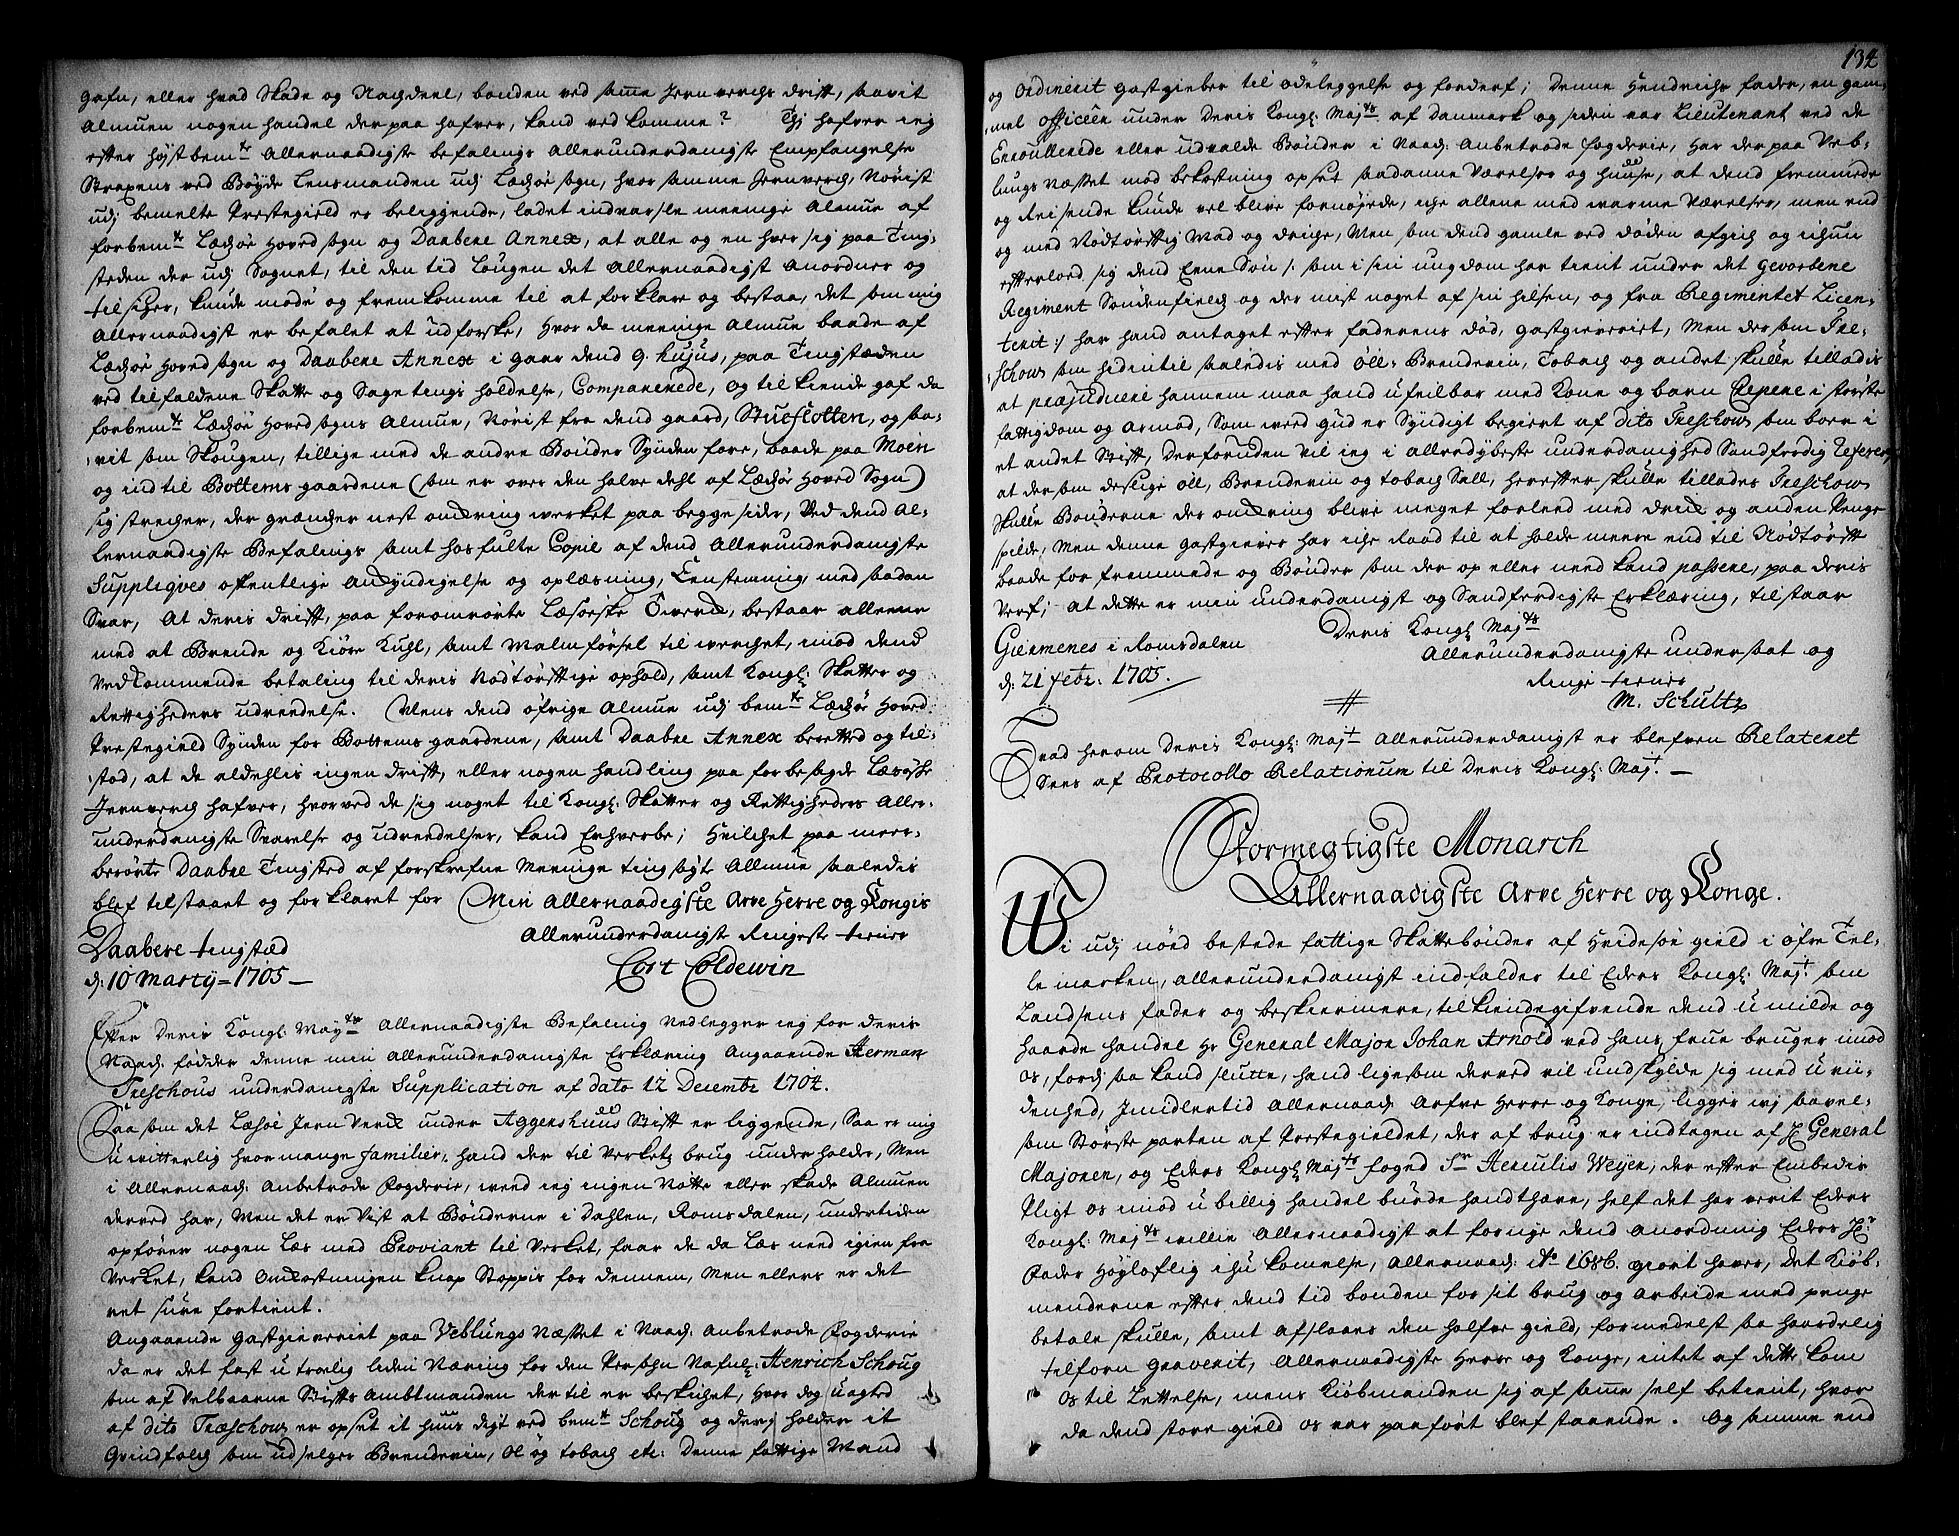 gafn, eller hvad Skade og Nachdeel, bonden ved samme Jernverchs drift, saavit
Almuen nogen handel der paa hafver, kand vedkomme? Thj hafver ieg
efter høystbemte Allernaadigste befalings Allerunderdanigste Empfangelse
Straxens ved Bøyde Lensmanden udj Læchøe sogn, hvor samme Jernverch, Nørist
udj bemelte Prestegield er beliggende, ladet indvarsle meenige Almue af
forbemte Læchøe hoved sogn og Daabere Annex, at alle og en hver sig paa Ting-
steden der udj Sognet, til den tid Lougen det Allernaadigst Anordner og
tilsiger, kunde møde og fremkomme til at forklare og bestaa, det som mig
Allernaadigst er befalet at udforske, Hvor da meenige Almue baade af
Læchøe hovedsogn og Daabere Annex i gaar dend 9. hujus, paa Tingstæden
ved tilfaldene Skatte og Sagetings holdelse, Comparerede, og tilkiende gaf da
forbemte Læchøe hoved sogns Almue, Nørist fra dend gaard, Stueflotten, og saa-
vit som Skougen, tillige med de andre Bønder Synden fore, baade paa Moen
og ind til Bottems gaardene (som er over den halve dehl af Læchøe Hoved Sogn)
sig strecher, der grændser nest omkring werket paa begge sider, Ved dend Al-
lernaadigste Befalings samt hosfulte Copie af dend Allerunderdanigste
Suppliqves offentlige Ankyndigelse og oplæsning, Eenstemmig, med saadan
Svar, At deris drift, paa foromrørte Læsøeske Verck, bestaar alleene
med at Brende og Kiøre Kuhl, samt Malmførsel til werchet, imod dend
Vedkommende betaling til deris Nødtørftige ophold, samt Kongl: Skatter og
Rettigheders udreedelse. Mens dend øfrige Almue udj bemte Læchøe Hoved
Prestegield Synden for Bottems gaardene, samt Daabre Annex beretted og til-
stod, at de aldehlis ingen drift, eller nogen handling paa forbesagde Læsøyske
Jernverch hafver, hvorved de sig noget til Kongl: Skatter og Rettigheders Aller-
underdanigste Svarelse og udreedelser, kand Erhverbe; Hvilchet paa meer-
berørte Daabre Tingsted af forskrefne Meenige tingsøgte Allmue saaledis
blef tilstaaet og forklaret for Min Allernaadigste Arve Herre og Kongis
Allerunderdanigste Ringeste tiener
Daabere tingstæd
d: 10 Martij = 1705 — Cort Coldewin
Efter Deris Kongl: Mayts Allernaadigste Befaling Vedlegger ieg for deris
Naad: fødder denne min Allerunderdanigste Erklæring Angaaende Herman
Treschous underdanigste Supplication af dato 12 Decembr 1704.
Saa som det Læsøe Jern Verck under Aggershuus Stift er liggende, Saa er mig
Uvitterlig hvormange familier, hand der til Verkets brug underholder, Men
i Allernaad: Anbetrode Fogderie, weed ieg ingen Nøtte eller skade Almuen
derved har, Men det er Vist at Bønderne i Dahlen, Romsdalen, undertiden
opfører nogen Læs med Proviant til Verket, faar de da Læs need igien fra
Verket, kand Omkostningen knap Stoppis for dennem, Men ellers er det
ret suure fortient.
Angaaende gastgieveriet paa Veblungs Næsset i Naad: Anbetrode Fogderie
da er det fast utroelig liden Næring for den Persohn Nafnl: Henrich Schoug
som af Velbaarne Stifts Ambtmanden der til er beskichet, hvor dog uagted
af dito Treschow er opset it huus digt ved bemte Schoug og derj holder it
Qvindfolch som udselger Brendevin, Øl og tobach etc: Denne fattige Mand
134
og ordinerit gastgieber til ødeleggelse og forderf; Denne Hendrichs fader, en gam-
mel officeer under Deris Kongl: Majts af Danmark og siden var Lieutenant ved de
Enroullerede eller udvalde Bønder i Naad: Anbetrode fogderie, har der paa Veb-
lungs Næsset med bekostning opset saadanne Værelser og huuse, at dend fremmede
og Reisende kunde vel blive fornøyede, iche allene med warme Værelser, men end
og med Nødtørftig Mad og driche, Men som dend gamle ved døden afgich og ichun
efterlod sig dend Eene Søn /: som i sin ungdom har tient under det Gevorbene
Regiment Søndenfields og der mist noget af sin hilsen, og fra Regimentet Licen-
terit :/ har hand antaget efter faderens død, gastgieveriet, Men dersom Tre-
schow som hidintil saaledis med Øll, Brendevin, Tobach og andet skulle tilladis
at præjudicere hannem maa hand ufeilbar med Kone og barn Crepere i største
fattigdom og Armod, Som weed gud er Syndigt begiert af dito Treschow som boer i
et andet Stift, Derforuden vil ieg i allerdybeste underdanighed Sandfærdig referere
at dersom deslige Øll, Brendevin og tobach Sall, herefter skulle tillades Treschow
Skulle Bønderne der omkring blive meget forleed med drick og anden Penge
spilde, Men denne gastgiever har iche Raad til at holde meere end til Nødtørft
baade for fremmede og Bønder som der op eller need kand passere, paa deris
Verf; At dette er min underdanigst og Sandferdigste Erklæring, tilstaar
Giermenes i Romsdalen Deris Kongl Majts
d: 21 febr: 1705. Allerunderdanigste undersaat og
Ringe tiener
M. Schultz
Hvad herom Deris Kongl: Majt Allerunderdanigst er blefven Relateret
Sees af Protocollo Relationum til Deris Kongl: Majt. —
Stormegtigste Monarch
Allernaadigste Arve Herre og Konge.
Wi udj nød bestede fattige Skattebønder af Hvidesøe gield i Øfre Tel-
lemarken, allerunderdanigst indfalder til Eders Kongl: Majt som
Landsens fader og beskiermere, tilkiendegifvende dend umilde og
haarde handel Hr General Major Johan Arnold ved hans frue bruger imod
os, fordj saa kand slutte, hand ligesom derved vil undskylde sig med uvii-
denhed, Imidlertid Allernaad: Arfve Herre og Konge, ligger wj saavel-
som Største parten af Prestegieldet, der af brug er indtagen af Hr General
Majoren, og Eders Kongl: Majts foged Sr Herculis Weyer, der efter Embedis
Pligt os imod ubillig handel burde handthæve, helst det har verit Eders
Kongl: Majts willie Allernaadigst at fornye dend Anordning Eders Hr
Fader Høyloflig ihukomelse, Allernaad: Ao 1686. giort haver, Det Kiøb-
menderne efter dend tid bonden for sit brug og arbeide med penge
betale skulle, samt afslaaes den halfve gield, formedelst saa haardelig
tilforn graverit, Allernaadigste Herre og Konge, intet af dette kom
os til Lettelse, mens Kiøbmanden sig af samme self betient, hvor
da dend store gield os var paaført blef staaende. Og samme end